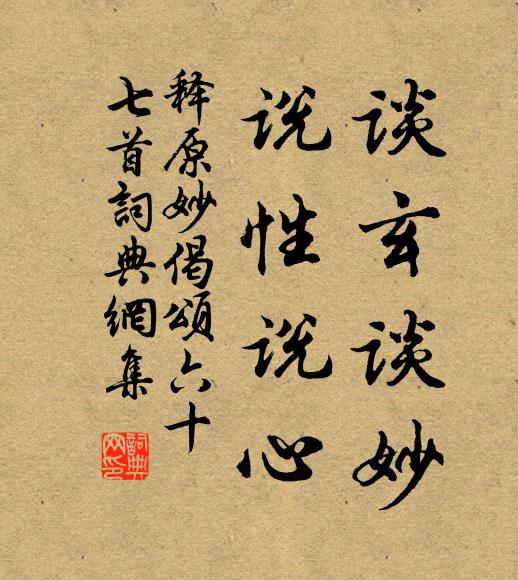 谈玄谈妙
说性说心
释原妙偈頌六十
七首詞典網集
詞典网印